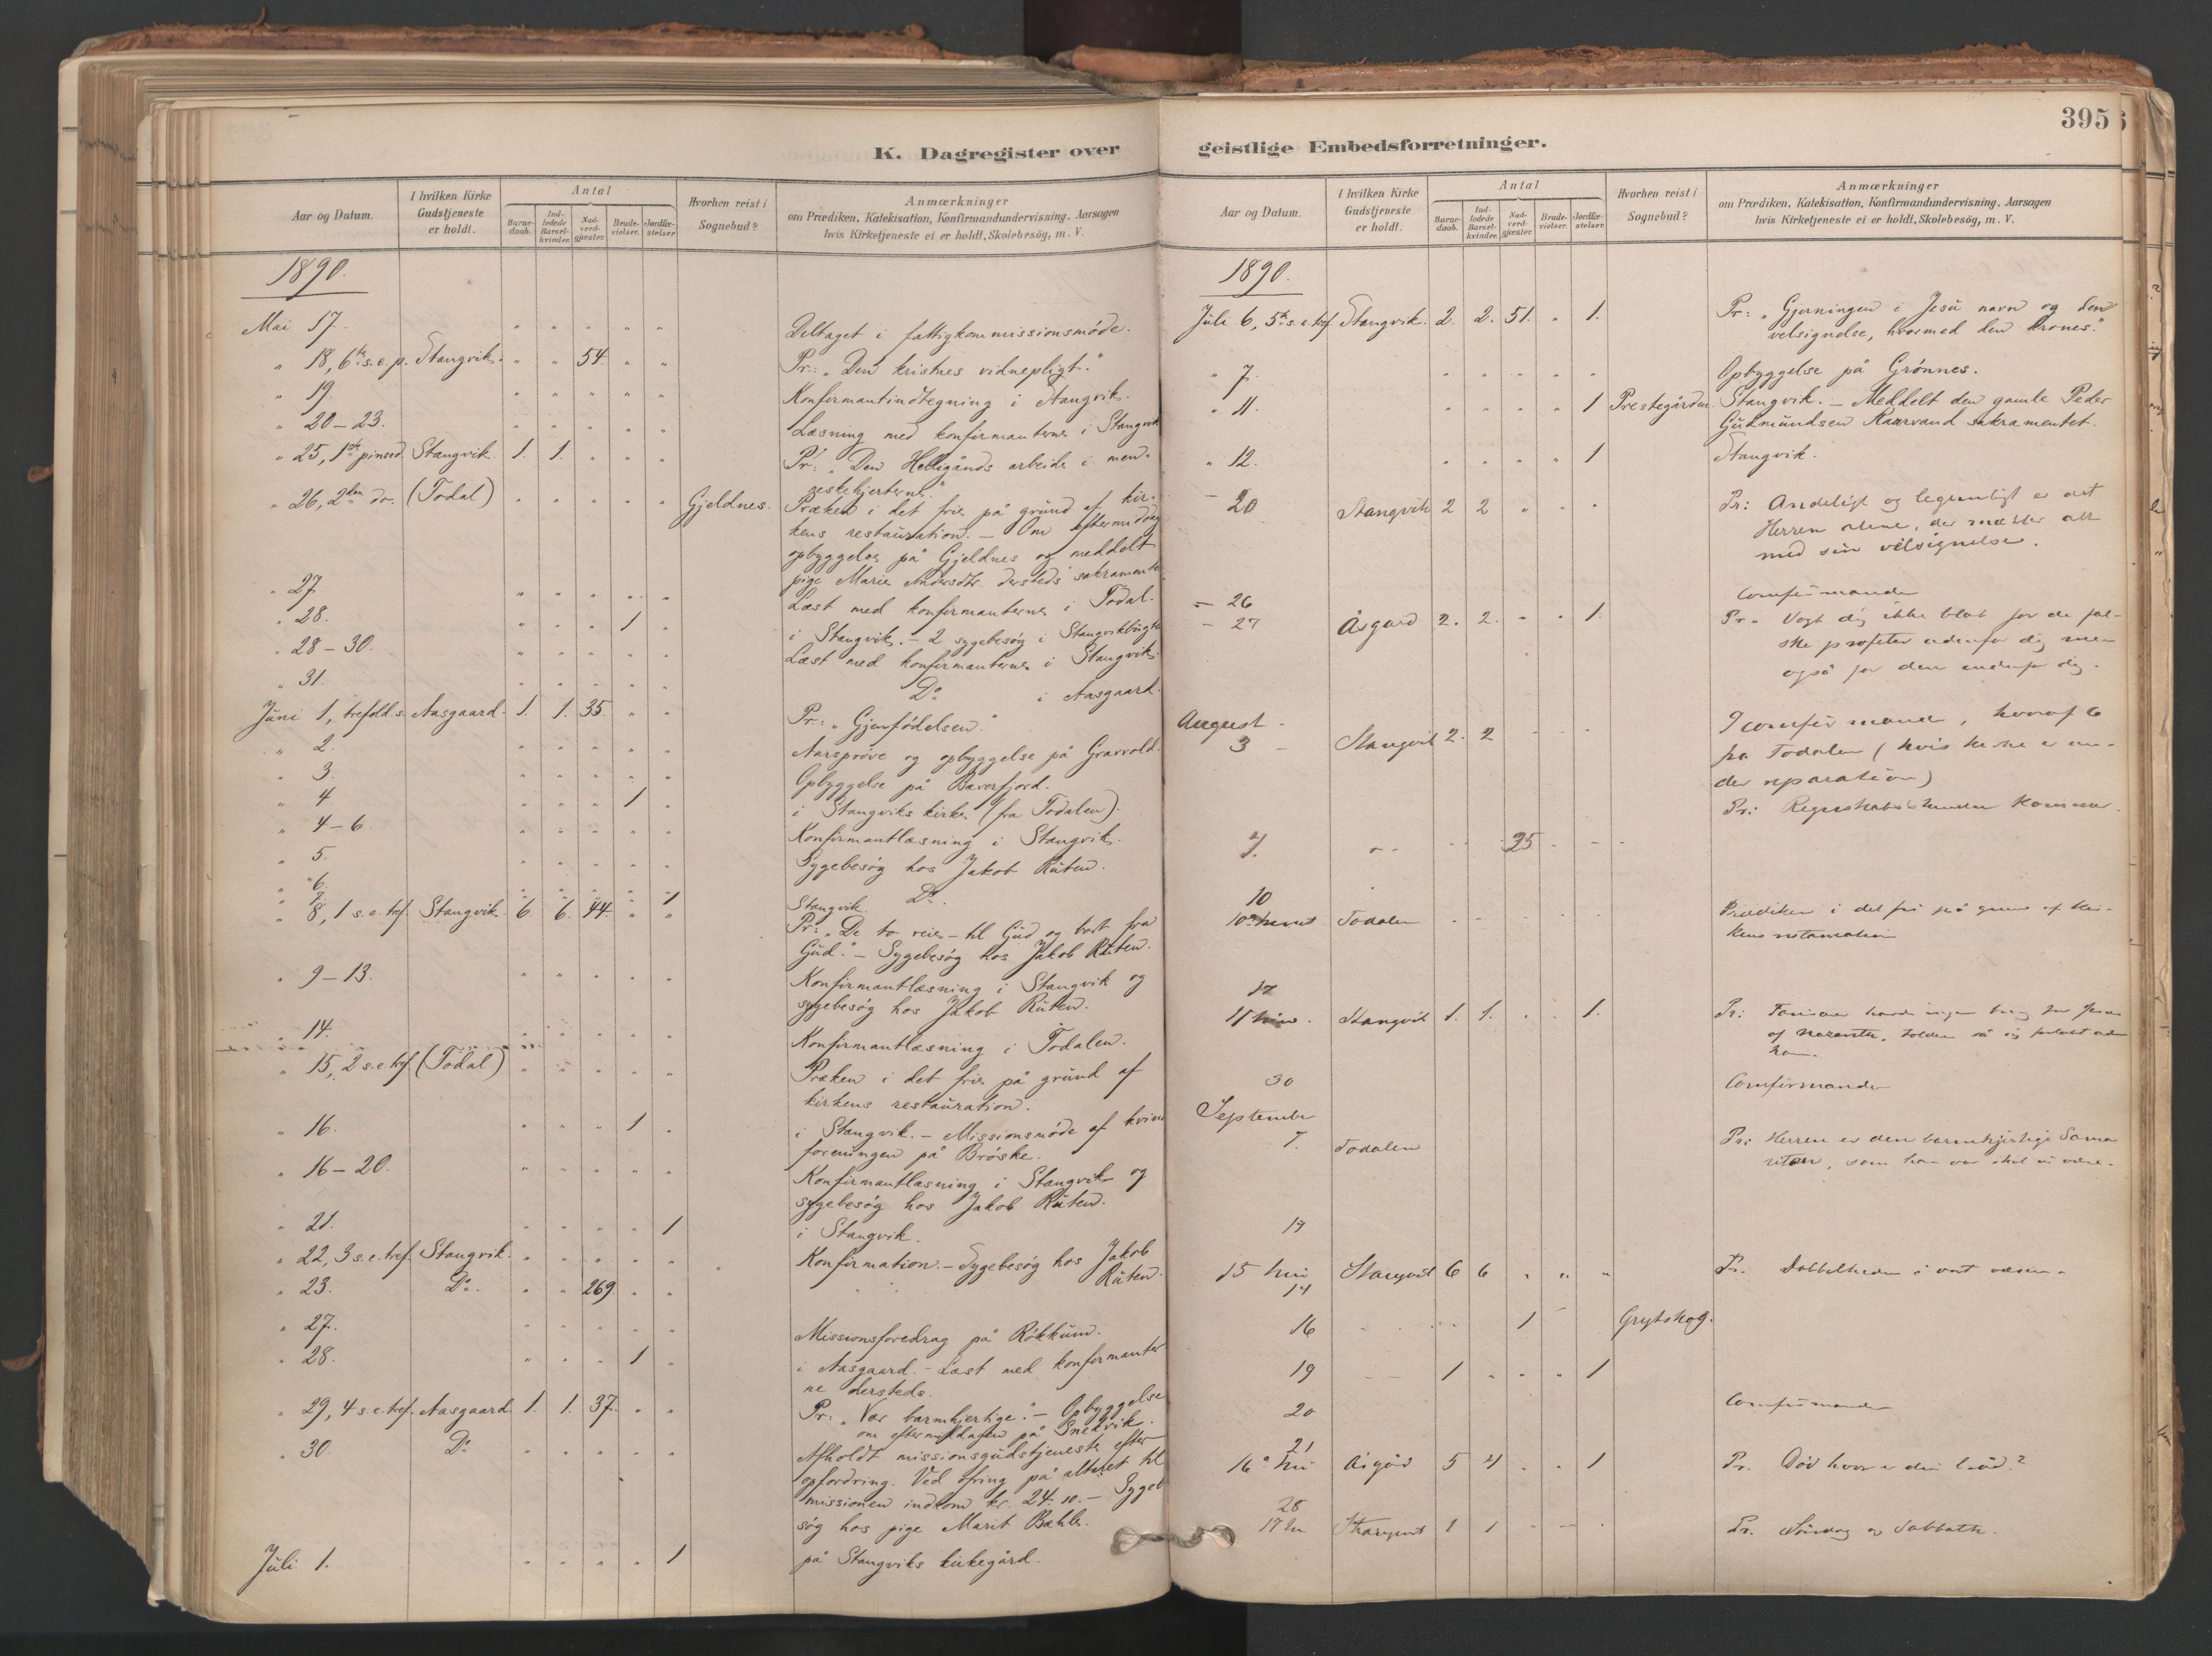 395
K. Dagregister over
Aar og Datum.
I hvilken Kirke Gudstjeneste er holdt.
Antal
Barne-daab.
Ind-ledede Barsel-kvinder.
Nad-verd-gjæster.
Brude-vielser.
Jordfæ-stelser
Hvorhen reist i Sognebud?
Anmærkninger
om Prædiken, Katekisation, Konfirmandundervisning, Aarsagen
hvis Kirketjeneste ei er holdt, Skolebesög, m. V.
1890.
Mai 17. " " " " " Deltaget i fattigkommissionsmøde.
" 18, 6te s. e. p. Stangvik. " " 54. " " Pr.: "Den kristnes vidnepligt."
" 19. " " " " " Konfirmantindtegning i Stangvik.
" 20-23. " " " " " Læsning med konfirmanterne i Stangvik
" 25, 1ste pinsed. Stangvik. 1. 1. " " " Pr.: "Den Helligånds arbeide i men-
neskehjerterne."
" 26, 2den do. (Todal) " " " " " Gjeldnes. Præken i det frie på grund af kir-
kens restauration. - Om eftermiddag
opbyggelse på Gjeldnes og meddelt
pige Marie Andersdtr. dersteds sakramente
" 27. " " " " " Læst med konfirmanterne i Todal.
" 28. " " " 1 " i Stangvik. - 2 sygebesøg i Stangvikbugte
" 28-30. " " " " " Læst med konfirmanterne i Stangvik.
" 31. " " " " " Do i Aasgaard.
Juni 1, trefold.s. Aasgaard. 1. 1. 35. " " Pr.: "Gjenfødelsen."
" 2. " " " " " Aarsprøve og opbyggelse på Gravvold.
" 3. " " " " " Opbyggelse på Bæverfjord.
" 4 " " " 1 " i Stangviks kirke (fra Todalen).
" 4-6. " " " " " Konfirmantlæsning i Stangvik.
" 5. " " " " " Sygebesøg hos Jakob Ruten.
" 6. " " " " " Do.
" 7. " " " " 1 Stangvik
" 8, 1 s. e. tref. Stangvik. 6. 6. 44. " " Pr.: "De to veie - til Gud og bort fra
Gud." - Sygebesøg hos Jakob Ruten.
" 9-13. " " " " " Konfirmantlæsning i Stangvik og
sygebesøg hos Jakob Ruten.
" 14. " " " " " Konfirmantlæsning i Todalen.
" 15, 2 s. e. tref. (Todal) " " " " " Præken i det frie på grund af
kirkens restauration.
" 16. " " " 1 " i Stangvik. - Missionsmøde af kvin
foreningen på Brøske.
" 16-20. " " " " " Konfirmantlæsning i Stangvik og
sygebesøg hos Jakob Ruten.
" 21. " " " " 1 i Stangvik.
" 22, 3 s. e. tref. Stangvik. " " " " " Konfirmation. - Sygebesøg hos Jakob
Ruten.
" 23. Do. " " 269 " "
" 27. " " " " " Missionsforedrag på Røkkum.
" 28. " " " 1 " i Aasgaard. - Læst med konfirmanter
ne dersteds.
" 29, 4 s. e. tref. Aasgaard. 1. 1. 37. " " Pr.: "Vær barmhjertige." - Opbyggelse
om eftermiddagen på Snekvik.
" 30. Do " " " " " Afholdt missionsgudstjeneste efter
opfordring. Ved ofring på altret til
missionen indkom kr. 24.10. - Sygeb
søg hos pige Marit Bæhle.
Juli 1. " " " " 1 på Stangviks kirkegård.
geistlige Embedsforretninger.
Aar og Datum.
I hvilken Kirke Gudstjeneste er holdt.
Antal
Barne-daab.
Ind-ledede Barsel-kvinder.
Nad-verd-gjæster.
Brude-vielser.
Jordfæ-stelser.
Hvorhen reist i Sognebud?
Anmærkninger
om Prædiken, Katekisation, Konfirmandundervisning, Aarsagen
hvis Kirketjeneste ei er holdt, Skolebesög, m. V.
1890.
Juli 6, 5te s. e. tref. Stangvik. 2. 2. 51. " 1. Pr: "Gjerningen i Jesu navn og den
velsignelse, hvormed den krones."
" 7. " " " " " Opbyggelse på Grønnes.
" 11. " " " " 1 Prestegården. Stangvik. - Meddelt den gamle Peder
Gudmundsen Kaarvand sakramentet.
" 12. " " " " 1 Stangvik.
- 20 Stangvik 2 2 " " " Pr: Andeligt og legemligt er det
Herren alene, der mætter alt
med sin velsignelse.
- 26 Comfirmander
- 27 Åsgård 2. 2. " " 1. Pr. Vogt dig ikke blot for de fal-
ske profeter udenfor dig men
også for den indenfor dig.
August
3 - Stangvik 2. 2 - - - 9 comfirmander, hvoraf 6
fra Todalen (hvis kirke er un-
der reparation)
Pr: Regnskabets
7. 25
10
Todalen Prædiken i det fri på grund af kir-
kens restauration
17
Stangvik 1. 1. " " 1. Pr:
af Nazareth,
30 Comfirmander
September
7. Todalen Pr: Herren er den barmhjertige Sama
ritan, som han var skal vi være.
14
Stangvik 6 6 " " " Pr. Dobbeltheden i vort væsen.
16 1 Grytskog.
19 1 " " " 1
20 Comfirmander
21
Åsgård 5 4 " " 1 Pr. Død hvor er din brod?
28
Stangvik 1 1 Pr. Søndag og Sabbath.